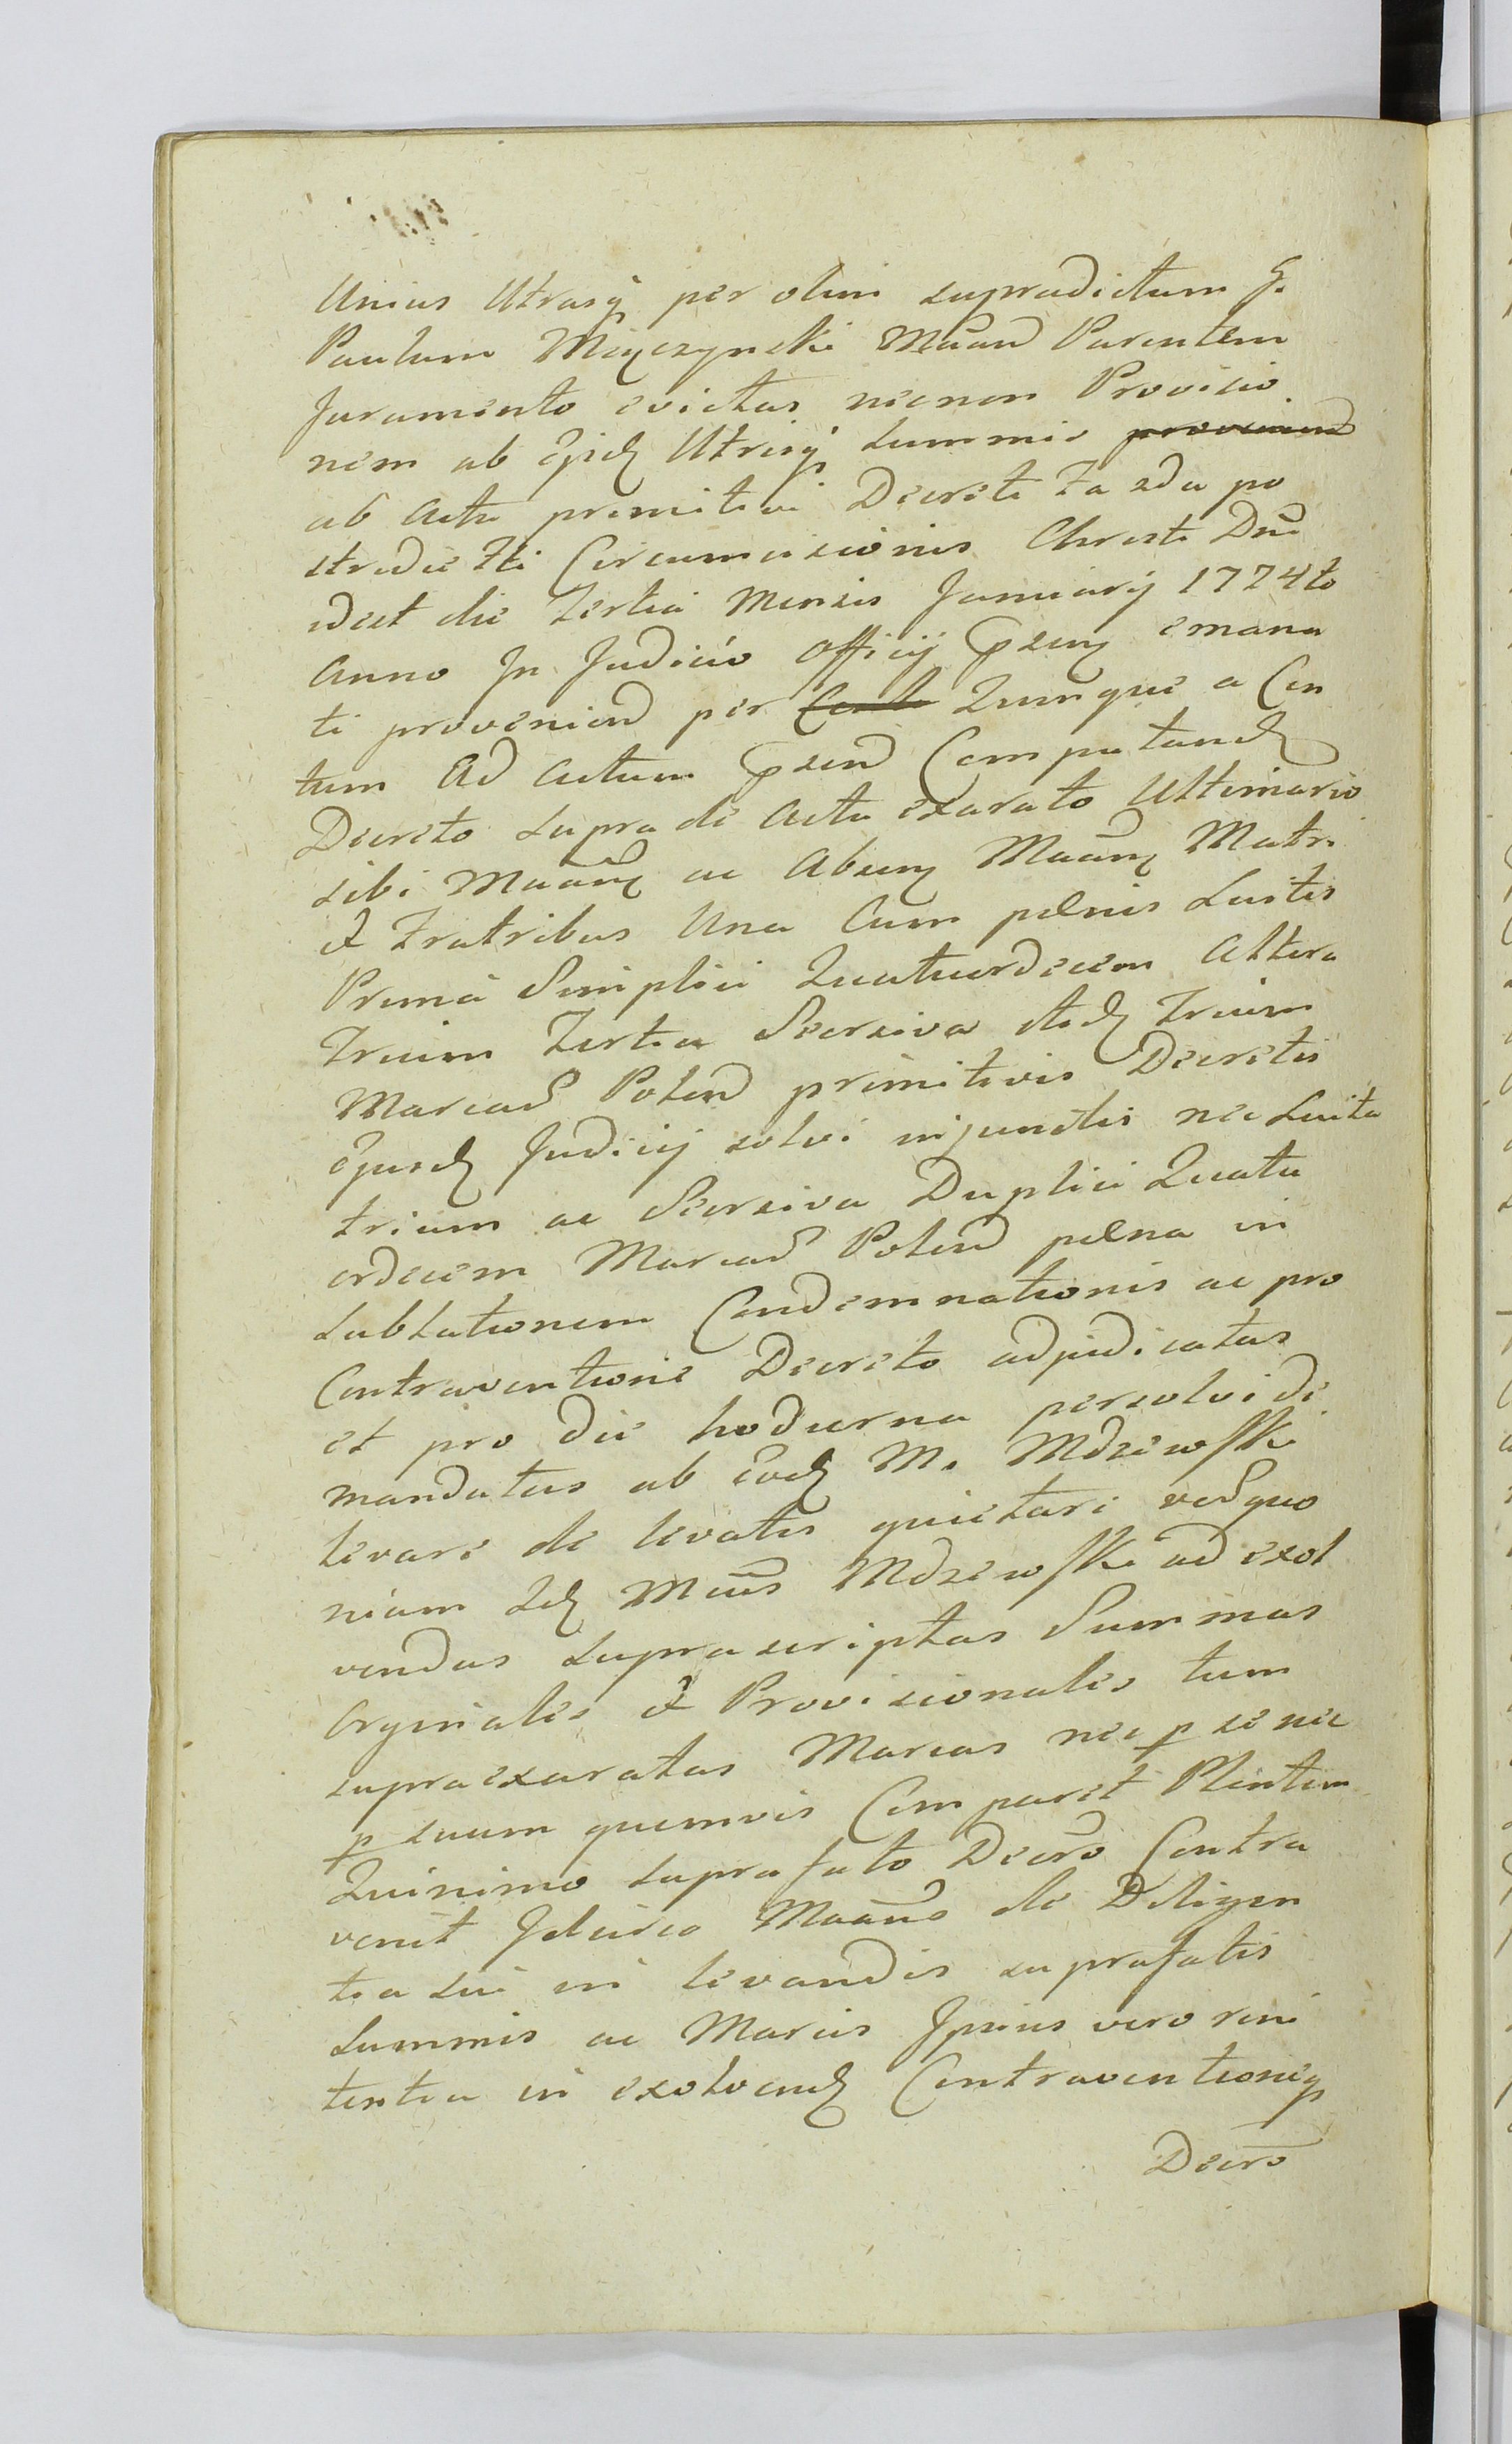 Unius Utrasq per olim supradictum G.
Paulum Miączynski Maand Parentem
Juramento evictas necnon Provisio
nem ab Eisd Utrisq summis proveniend
ab Actu primitivi Decreti Fa 2da po
stridie Fti Circumcisionis Christi Dni
idest die Tertia Mensis Januarij 1774to
Anno In Judicio Officij psen emana
ti proveniend per Cent Quinque a Cen
tum Ad Actum psend Computand
Decreto supra de Actu exarato Ultimario
sibi Maan ac Absen Maan Matri
et Fratribus Una Cum pænis Luitis
Prima Simplici Quatuordecem Altera
Trium Tertia Seorsiva itid Trium
Marcad Polend primitivis Decretis
Ejusd Judicij solvi injunctis nec Luita
trium ac Seorsiva Duplici Quatu
ordecem Marcad Polend pæna in
Sublationem Condemnationis ac pro
Contraventione Decreto adjudicatas
et pro die hodierna persolvi de
mandatas ab Eod M. Mdzewski
levare de levatis quietari vedquo
niam Id Mcus Mdzewski ad exol
vendas suprascriptas Summas
Orginales et Provisionales tum
supraexaratas Marcas nec p se nec
p suum quemvis Comparet Plentem
Quinimo suprafato Decro Contra
venit Idcirco Maans de Diligen
tia sui in levandis suprafatis
summis ac Marcis Ipsius vero reni
tentia in exolvend Contraventioneq
Decro